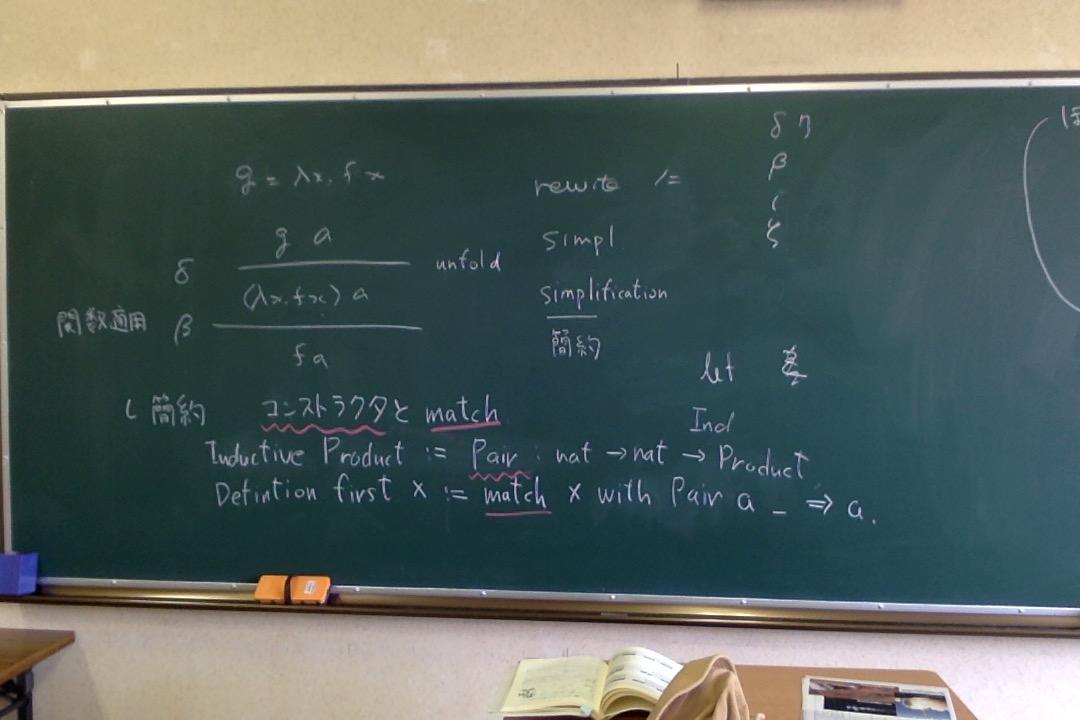 g = λx. f x
δ
g a
unfold
(λx. f x) a
関数適用 β
f a
rewrite /=
simpl
simplification
簡約
δ η
β
ι
ζ
let
Ind
ι 簡約 コンストラクタと match
Inductive Product := Pair : nat → nat → Product
Defintion first x := match x with Pair a _ ⇒ a.